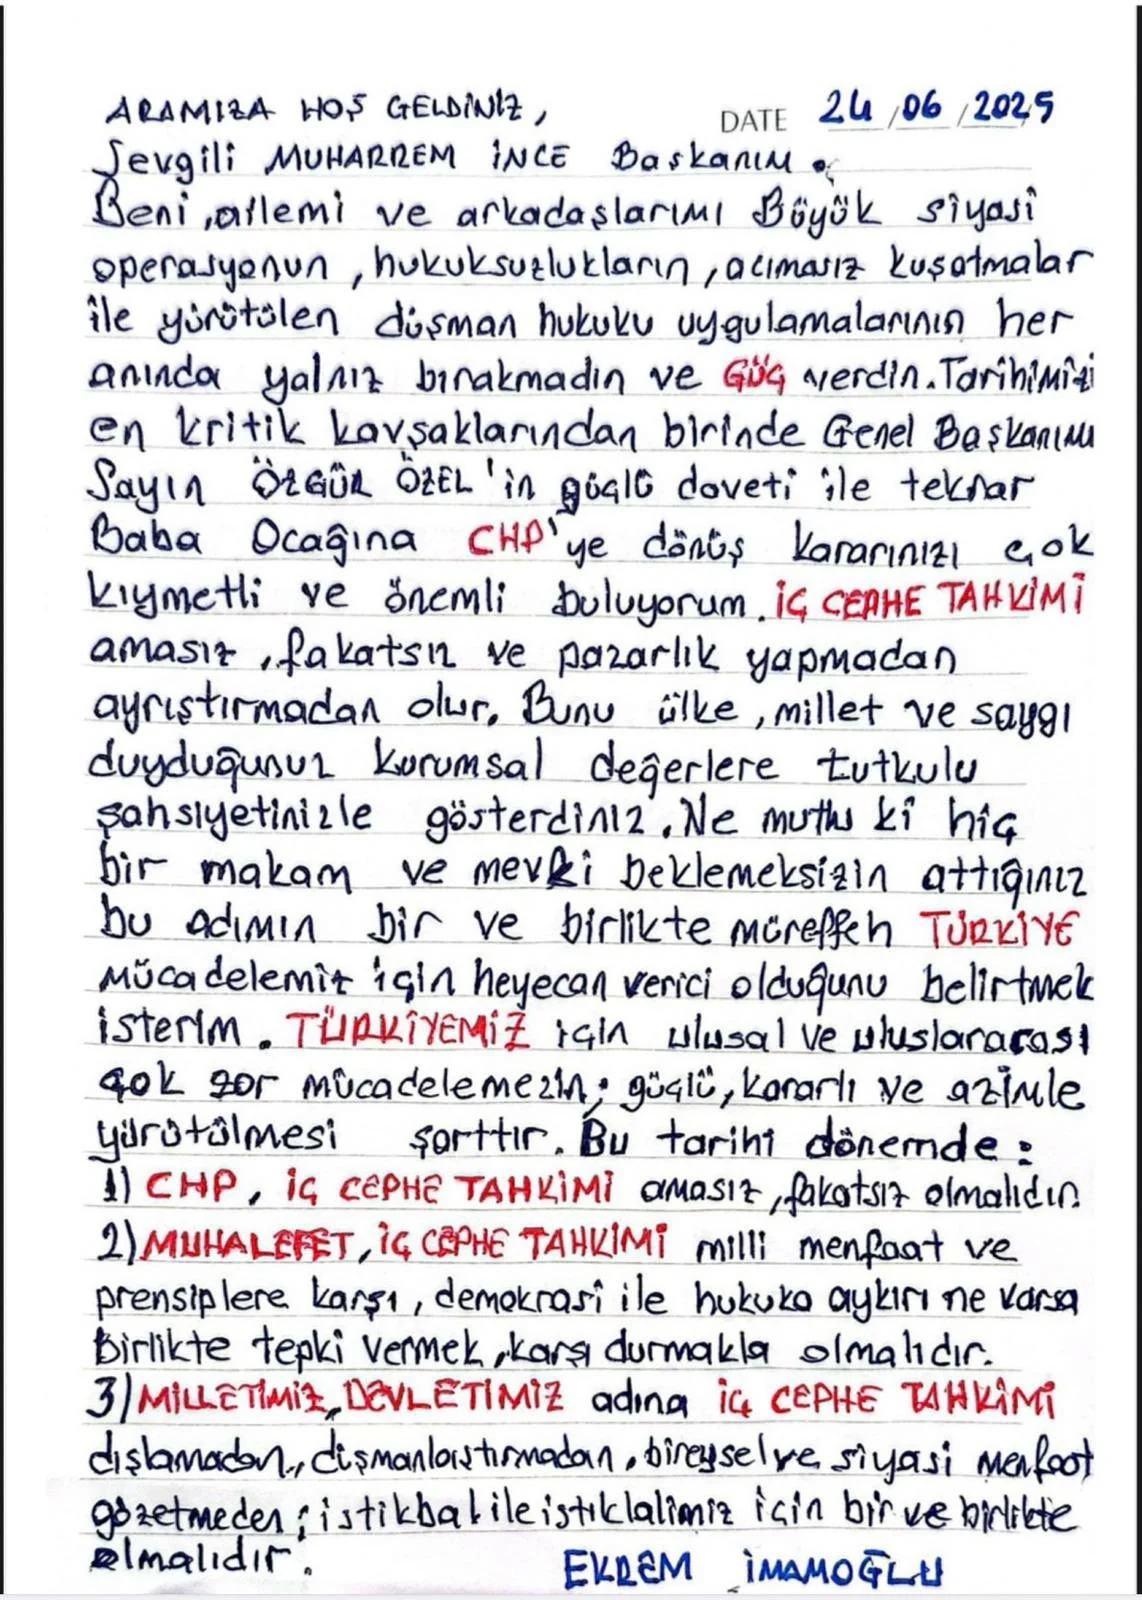 ARAMIZA HOŞ GELDİNİZ,
DATE 24/06/2025
Sevgili MUHARREM İNCE Başkanım.
Beni, ailemi ve arkadaşlarımı Büyük siyasi
operasyonun, hukuksuzlukların, acımasız kuşatmalar
ile yürütülen düşman hukuku uygulamalarının her
anında yalnız bırakmadın ve GÜÇ verdin. Tarihimizi
en kritik kavşaklarından birinde Genel Başkanım
Sayın ÖZGÜR ÖZEL'in güçlü daveti ile tekrar
Baba Ocağına CHP'ye dönüş kararınızı çok
kıymetli ve önemli buluyorum. İÇ CEPHE TAHKİMİ
amasız, fakatsız ve pazarlık yapmadan
ayrıştırmadan olur. Bunu ülke, millet ve saygı
duyduğunuz kurumsal değerlere tutkulu
şahsiyetinizle gösterdiniz. Ne mutlu ki hiç
bir makam ve mevki beklemeksizin attığınız
bu adımın bir ve birlikte müreffeh TÜRKİYE
mücadelemiz için heyecan verici olduğunu belirtmek
isterim. TÜRKİYEMİZ için ulusal ve uluslararası
çok zor mücadelemezin; güçlü, kararlı ve azimle
yürütülmesi şarttır. Bu tarihi dönemde:
1) CHP, İÇ CEPHE TAHKİMİ amasız, fakatsız olmalıdır.
2) MUHALEFET, İÇ CEPHE TAHKİMİ milli menfaat ve
prensiplere karşı, demokrasi ile hukuka aykırı ne varsa
Birlikte tepki vermek, karşı durmakla olmalıdır.
3) MİLLETİMİZ, DEVLETİMİZ adına iç CEPHE TAHKİMİ
dışlamadan, düşmanlaştırmadan, bireysel ve siyasi menfaat
gözetmeden; istikbal ile istiklalimiz için bir ve birlikte
olmalıdır.
EKREM İMAMOĞLU